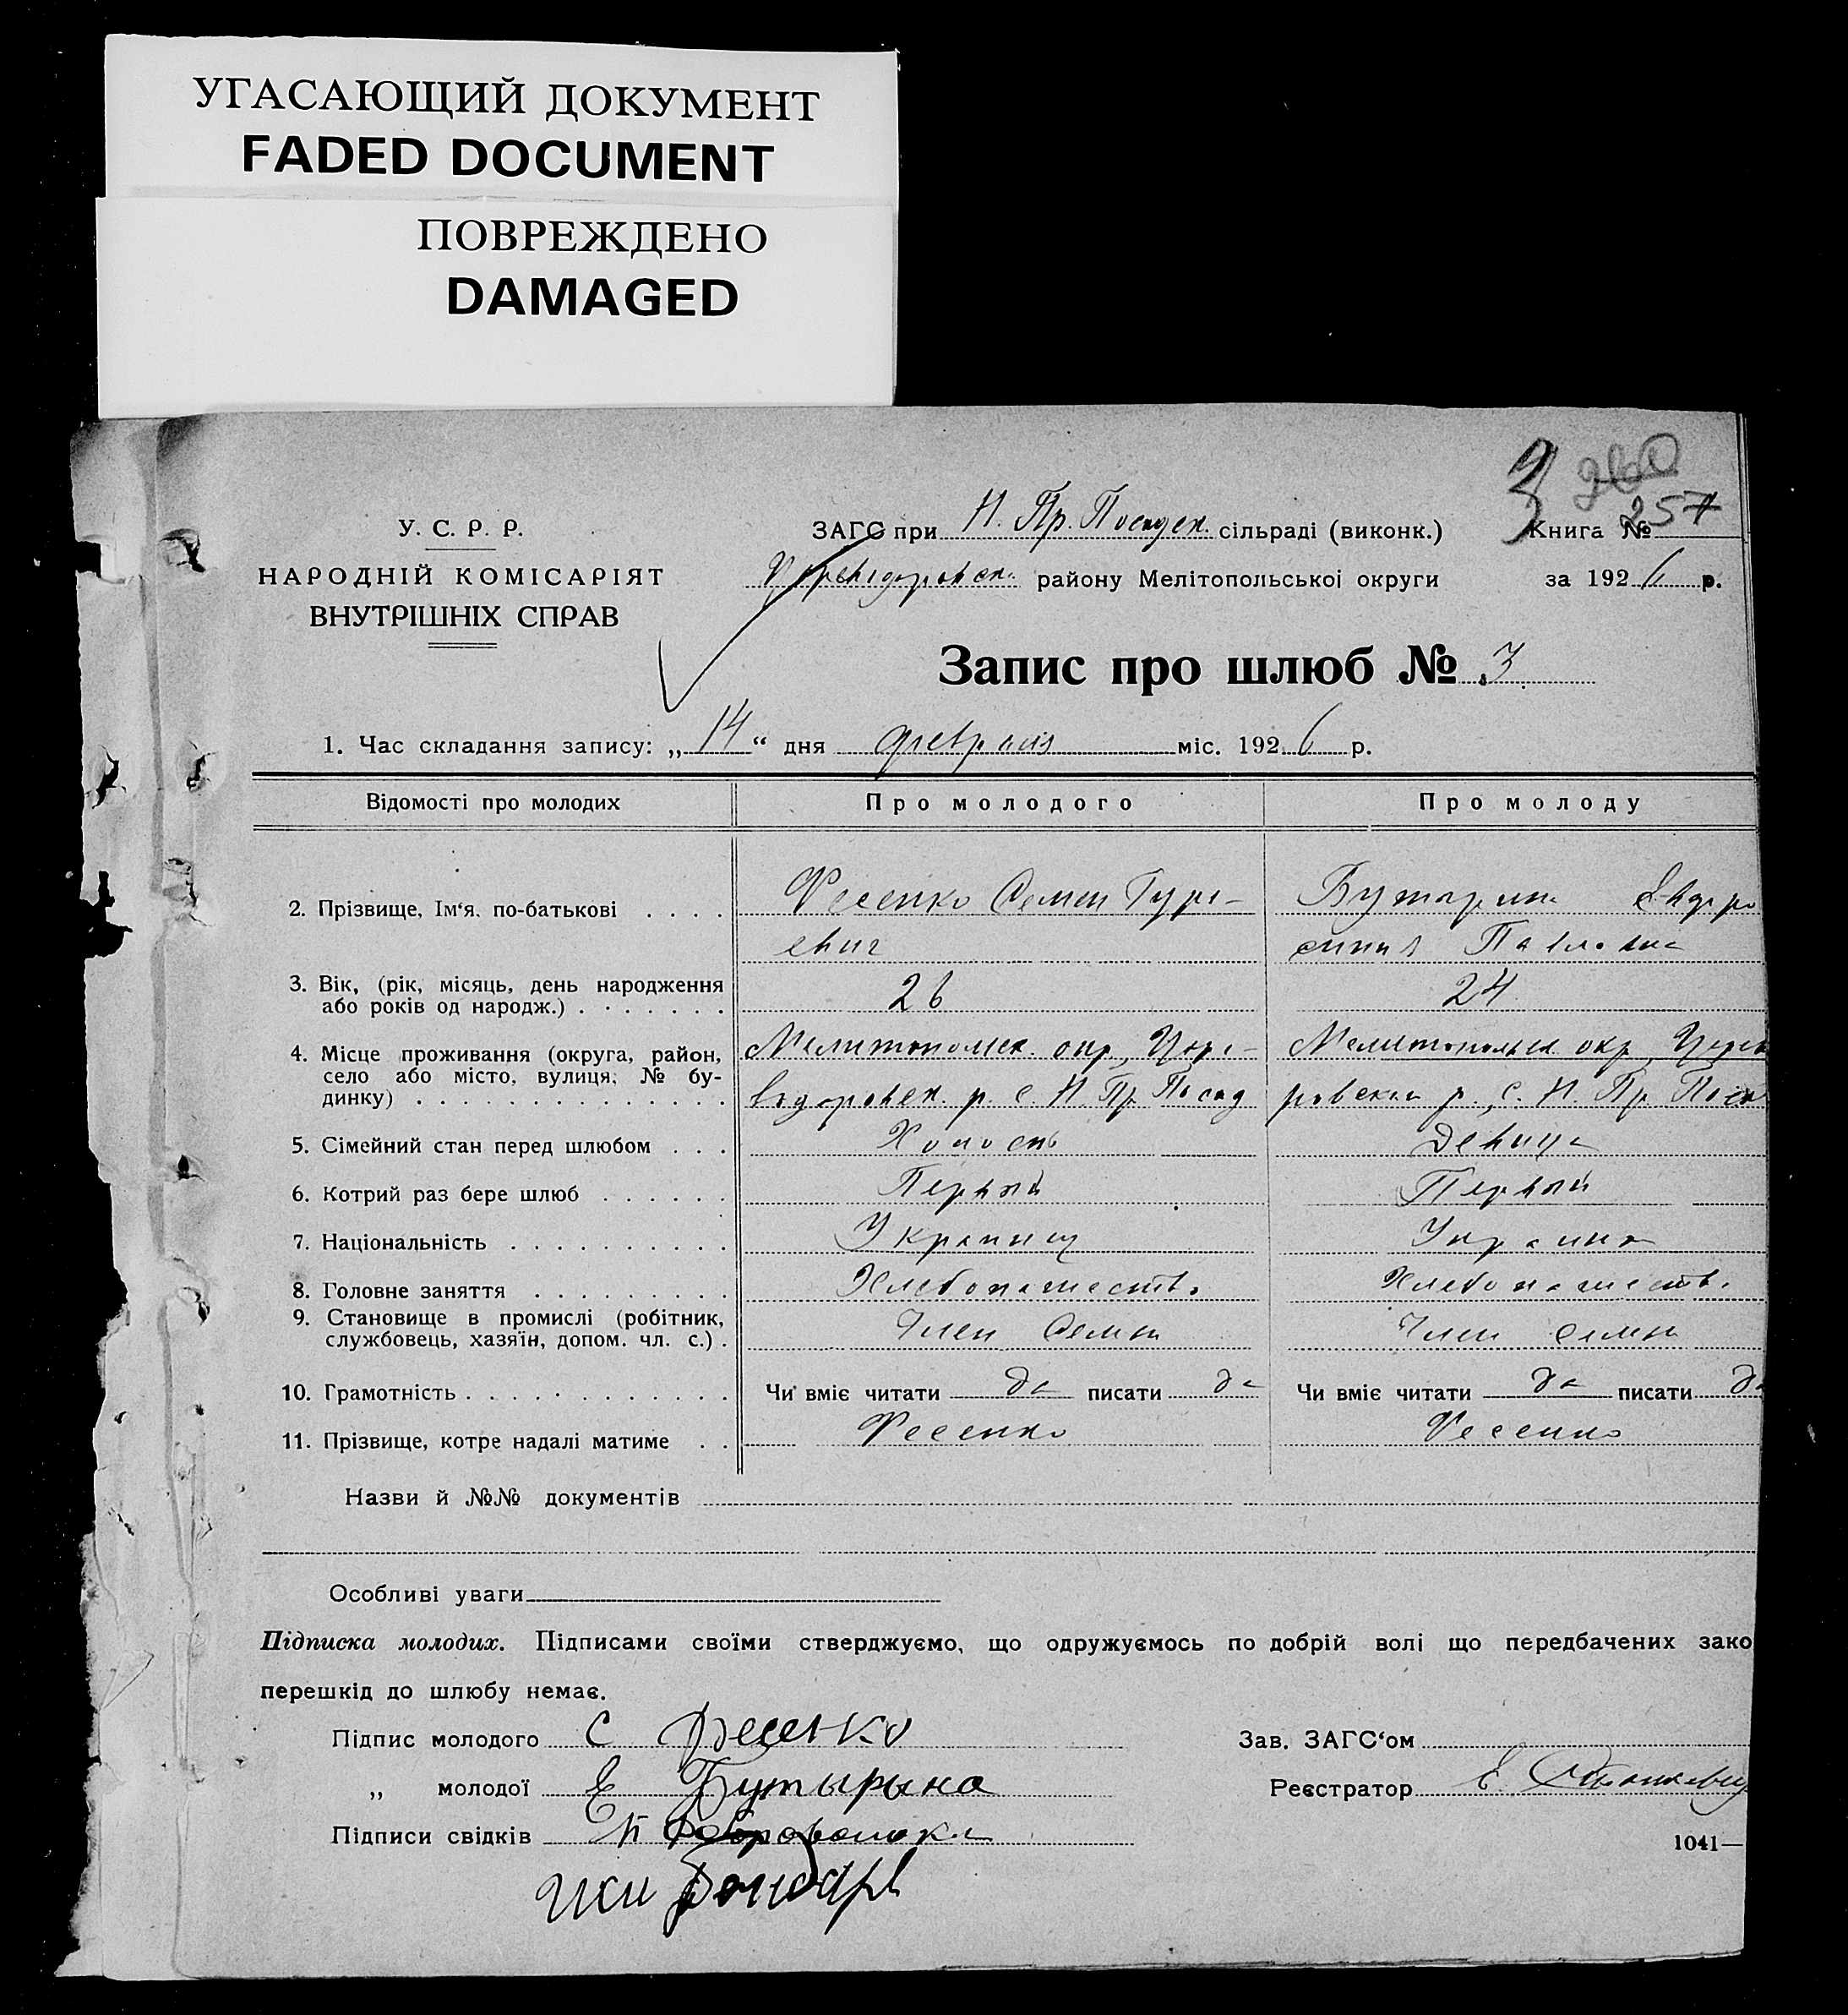 УГАСАЮЩИЙ ДОКУМЕНТ
FADED DOCUMENT
ПОВРЕЖДЕНО
DAMAGED
3 260
257
У. С. Р. Р.
НАРОДНІЙ КОМІСАРІЯТ
ВНУТРІШНІХ СПРАВ
ЗАГС при Н. Пр. Посадск. сільраді (виконк.)
Книга №
району Мелітопольської округи
за 1926 р.
Запис про шлюб № 3
1. Час складання запису: „14“ дня февраля міс. 1926 р.
Відомості про молодих Про молодого Про молоду
2. Прізвище, Ім'я, по-батькові . . . . Фесенко Семен Гурь- Бутырина Евдро
евич синия Павловна
3. Вік, (рік, місяць, день народження
або років од народж.) . . . . . . . 26 24
4. Місце проживання (округа, район, Мелитопольск. окр.,
село або місто, вулиця, № бу- Мелитопольск окр,
динку) . . . . . . . . . . . . . . р. с. Н. Пр Посад ровский р., с. Н. Пр. Поса
5. Сімейний стан перед шлюбом . . . Холост Девица
6. Котрий раз бере шлюб . . . . . . Первый Первый
7. Національність . . . . . . . . . . Украинец Украинка
8. Головне заняття . . . . . . . . . Хлебопашество Хлебопашество
9. Становище в промислі (робітник,
службовець, хазяїн, допом. чл. с.) . Член Семьи Член семьи
10. Грамотність . . . . . . . . . . . . . Чи вміє читати да писати да Чи вміє читати да писати да
11. Прізвище, котре надалі матиме . . Фесенко Фесенко
Назви й №№ документів
Особливі уваги
Підписка молодих. Підписами своїми стверджуємо, що одружуємось по добрій волі що передбачених зако
перешкід до шлюбу немає.
Підпис молодого С Фесенко
Зав. ЗАГС'ом
„ молодої Е Бутырына
Реєстратор Е.
Підписи свідків
1041—
Бондарь